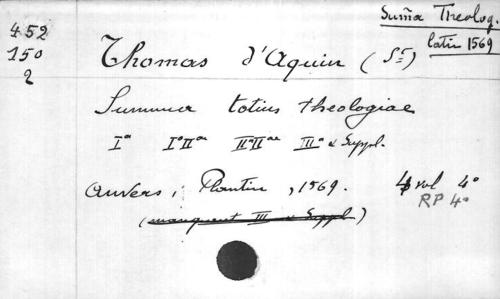 Sum̃a Theolog.
latin 1569
452
150
2
Thomas d'Aquin (St)
Summa totius theologiae
Iª IªIIae IIªIIae IIIª & Suppl.
Anvers, Plantin, 1569. 4 vol 4°
RP 4°
(manquent III & Suppl)